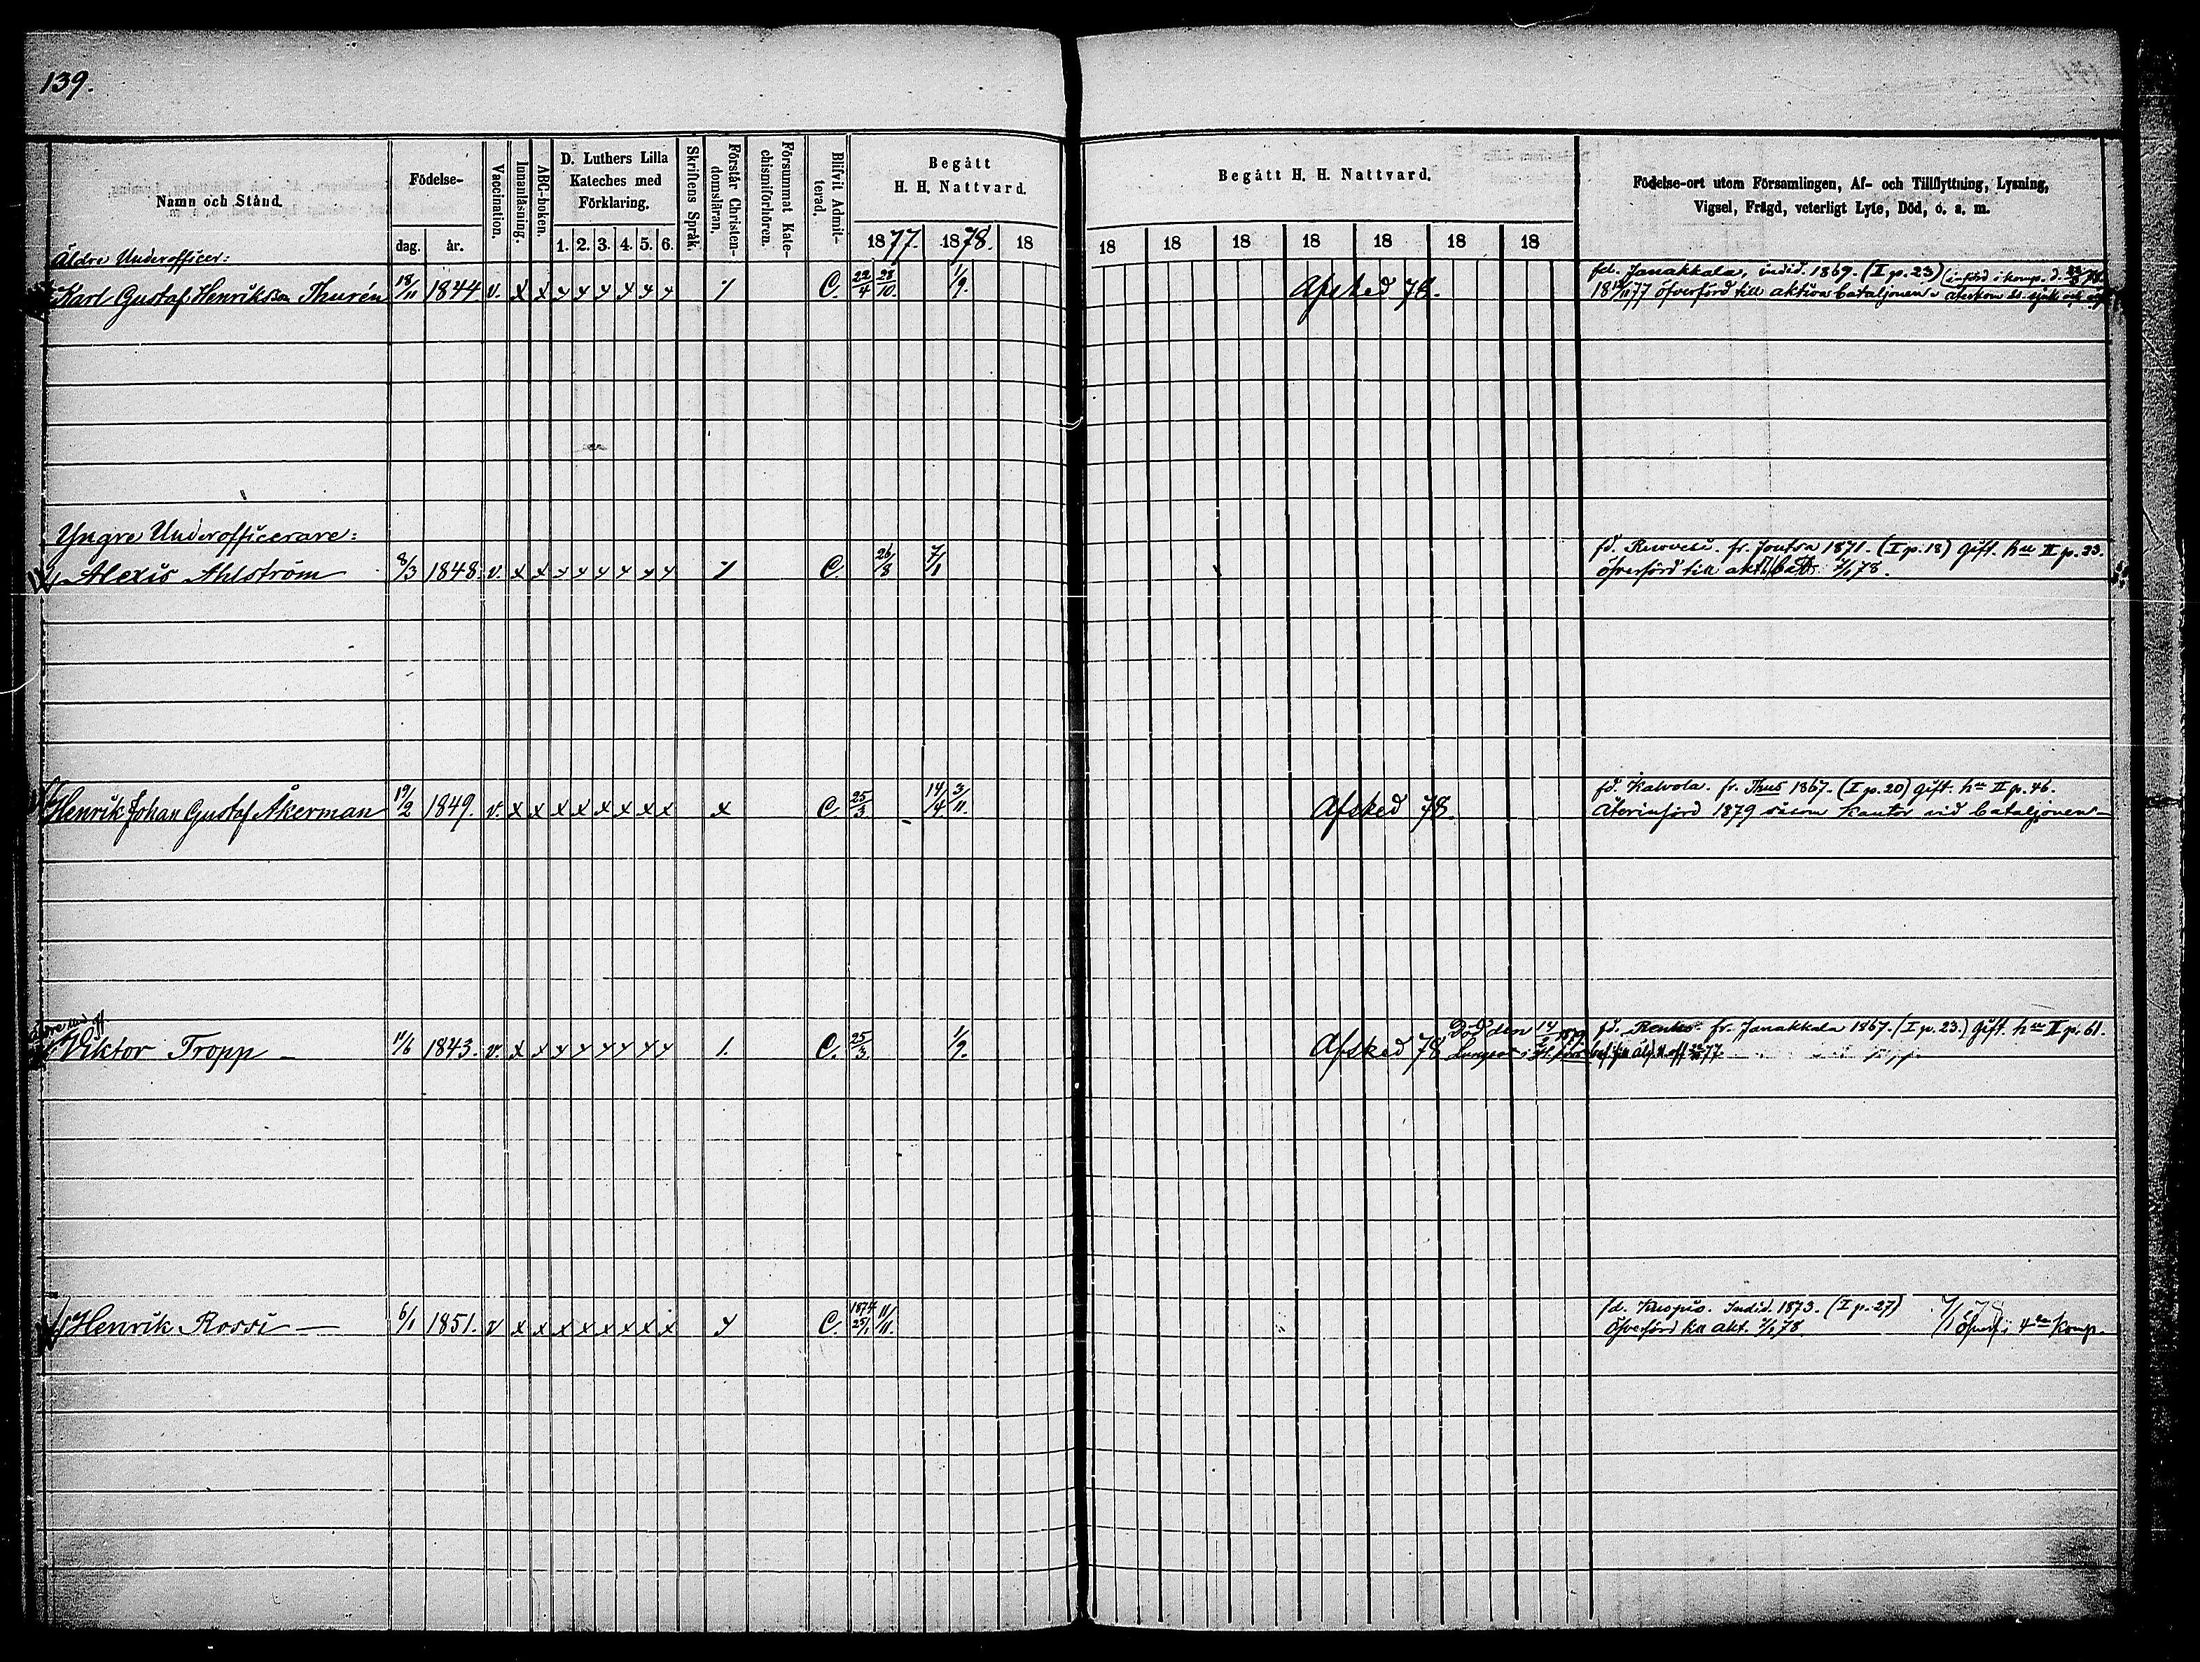 139.
Namn och Stånd.
Födelse-
dag.
år.
Vaccination.
Innanläsning.
ABC-boken.
D. Luthers Lilla
Kateches med
Förklaring.
1. 2. 3. 4. 5. 6.
Skriftens Språk.
Förstår Christen-
domsläran.
Försummat Kate-
chismiförhören.
Blifvit Admit-
terad.
Begått
H. H. Nattvard.
1877. 1878. 18
Begått H. H. Nattvard.
18 18 18 18 18 18 18
Födelse-ort utom Församlingen, Af- och Tillflyttning, Lysning,
Vigsel, Frägd, veterligt Lyte, Död, o. s. m.
Äldre Underofficer:
Karl Gustaf Henriksson Thurén 18/11 1844 v. x x y y y y y y y C. 22/4 28/10. 1/9. Afsked 78.
fd. Janakkala, indid. 1869. (I p. 23)
77 öfverförd till aktiva bataljonen
Yngre Underofficerare:
Alexis Ahlström 8/3 1848. v. x x y y y y y y y C. 26/8 7/1
fd. Ruovesi. fr. Joutsa 1871. (I p. 18) gift. hu II p. 23.
öfverförd till akt. batt. 7/1 78.
Henrik Johan Gustaf Åkerman 19/2 1849. v. x x x x x x x x x C 25/3. 14/4. 3/11. Afsked 78.
fd. Kalvola. fr. Thus 1867. (I p. 20) gift. hu II p. 46.
Återinförd 1879 såsom Kantor vid bataljonen
Viktor Tropp 11/6 1843. v. x x y y y y y y 1. C. 25/3. 1/9. Afsked 78
Död den 14/2 1879
fd. Renko. fr. Janakkala 1867. (I p. 23.) gift. hu II p. 61.
Henrik Rossi 6/1 1851. v x x x x x x x x y C. 1874 25/1 11/11.
fd. Kuopio. Indid. 1873. (I p. 27)
Öfverförd till akt. 7/1 78
7/1 78 Öfverf. i 4de Komp.